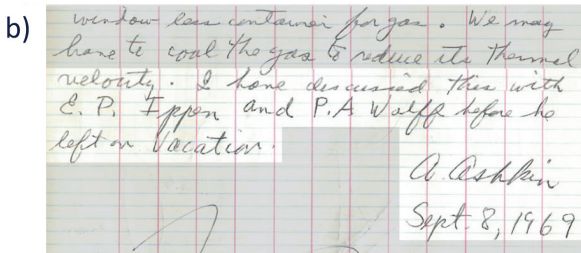 b)
window less container for gas. We may
have to cool the gas to reduce its thermal
velocity. I have discussed this with
E. P. Ippen and P.A Wolff before he
left on Vacation.
A. Ashkin
Sept. 8, 1969